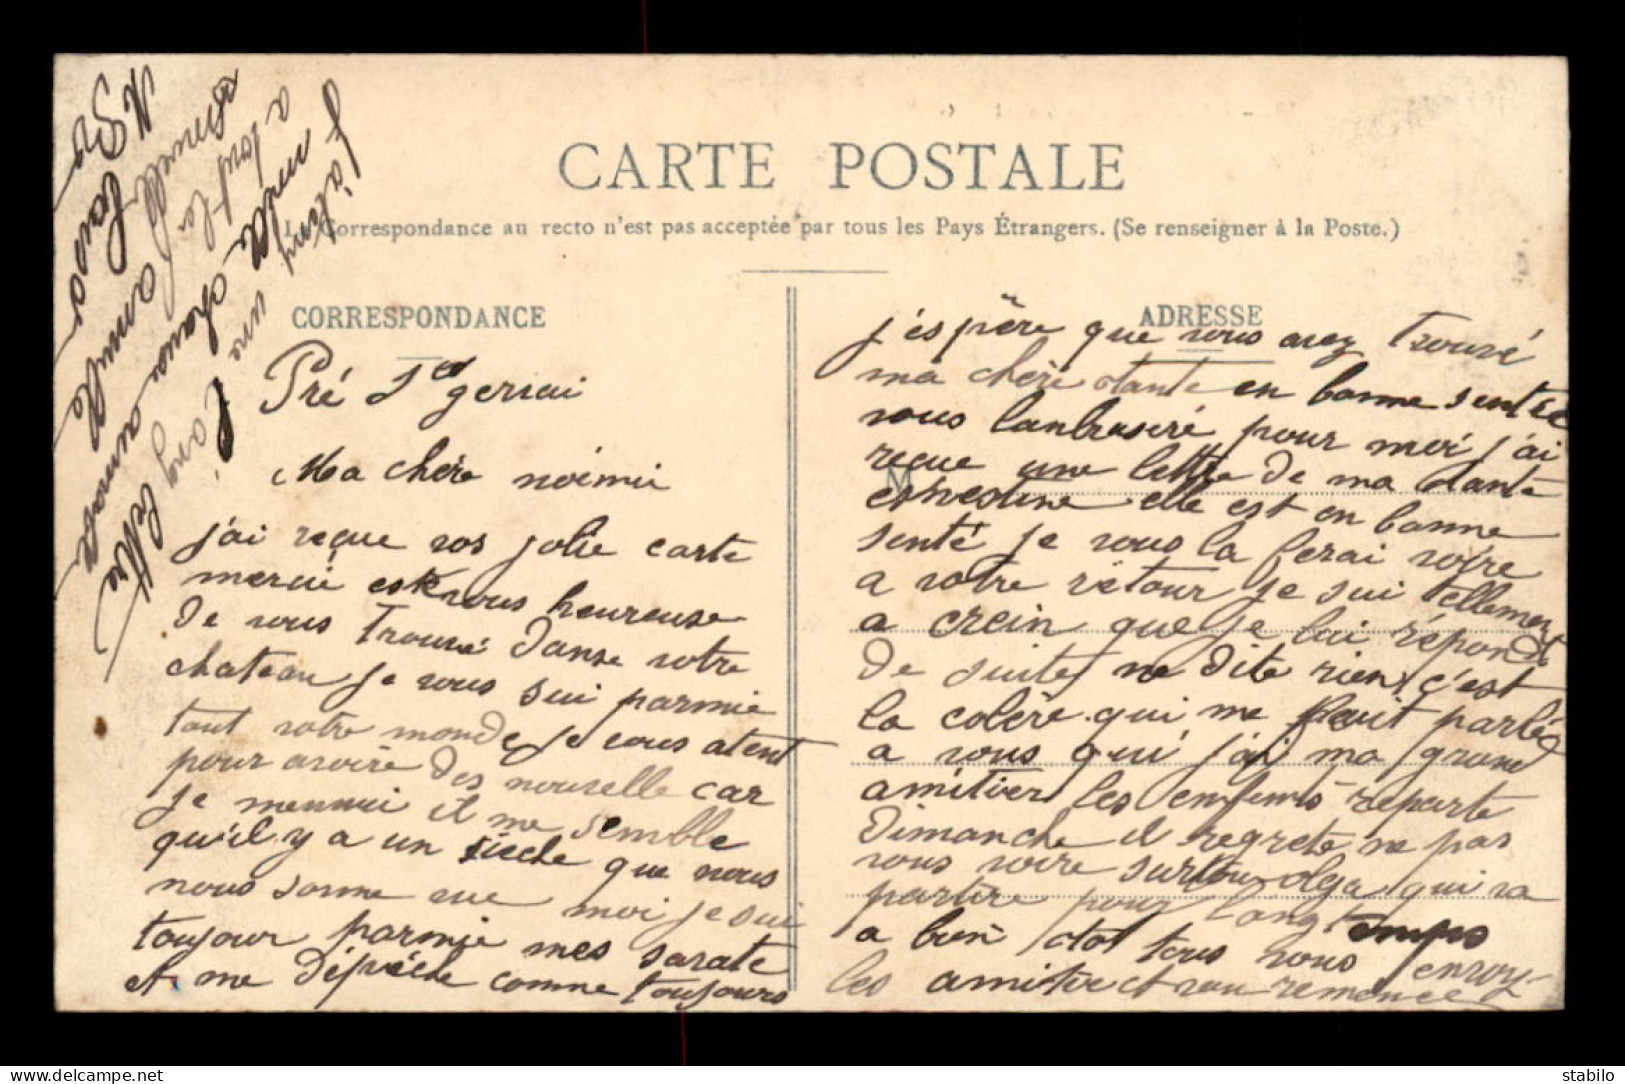 CARTE POSTALE
La Correspondance au recto n'est pas acceptée par tous les Pays Étrangers. (Se renseigner à la Poste.)
CORRESPONDANCE
Pré St gervai
Ma chère noimie
j'ai reçue vos jolie carte
merçie est vous heureuse
De vous Trouvé Danse votre
chateau je vous sui parmie
tout votre monde je vous atent
pour avoire Des nouvelle car
je mennui il me semble
qu'il y a un siècle que nous
nous somme vue moi je sui
toujour parmie mes savate
et me dépèche comme toujours
ADRESSE
M
j'éspère que vous avez Trouvé
ma chère tante en bonne sentée
vous lanbraseré pour moi j'ai
reçue une lettre de ma tante
ernestine elle est en bonne
senté je vous la ferai voire
a votre retour je sui tellement
a crein que je lui répond
De suite ne dite rien c'est
la colère qui me fait parlé
a vous qui j'ai ma grand
amitier les enfents reparte
Dimanche il regrete ne pas
vous voire surtou olga qui va
partire pour Longtemps
a bien tot tous nous envoy
les amitier et
J'atens une long lettre
a tout les
delcampe.net
stabilo